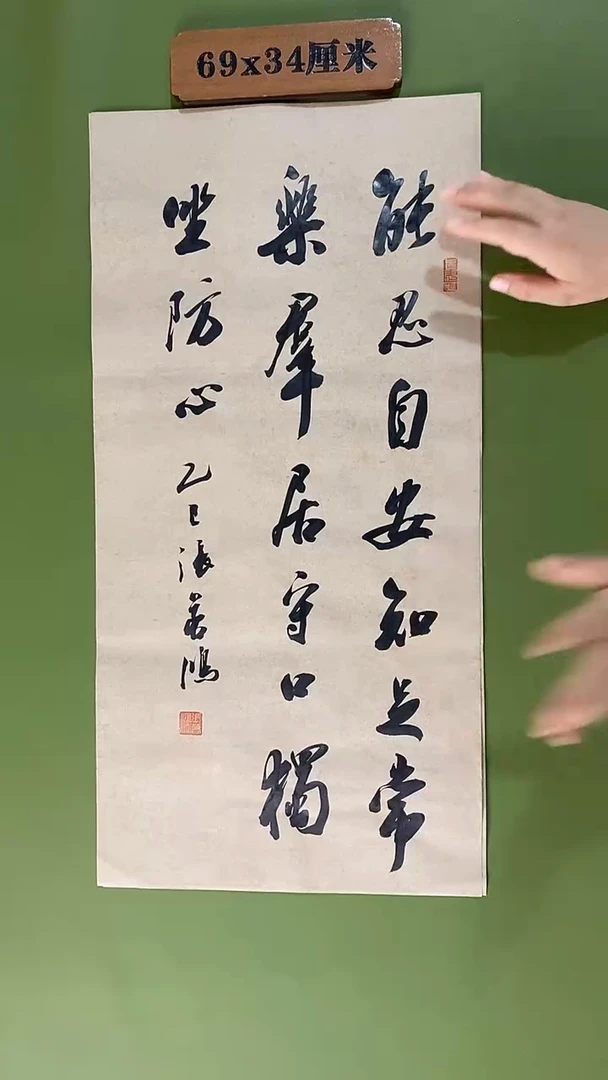 69x34厘米
能忍自安知足常
樂羣居守口獨
坐防心 乙巳張善鴻